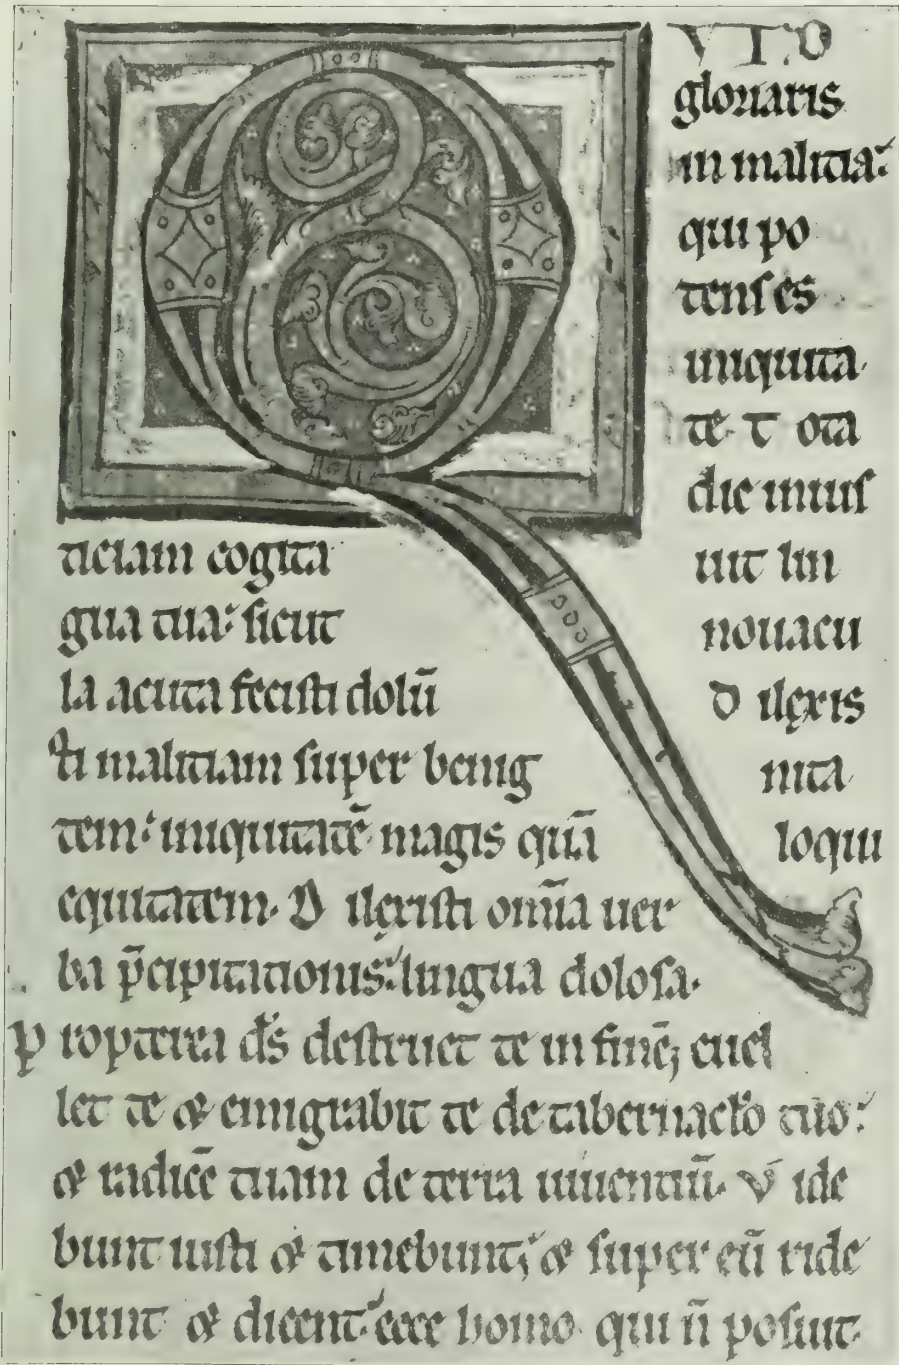 QVID
gloriaris
in malitia:
qui po
tens es
iniquita
te. T ota
die inius
ticiam cogita uit lin
gua tua: sicut nouacu
la acuta fecisti dolū D ilexis
ti malitiam super benig nita
tem: iniquitatē magis quā loqui
equitatem. D ilexisti om̄ia uer
ba p̄cipitationis: lingua dolosa.
P ropterea d̄s destruet te in finē; euel
let te & emigrabit te de tabernac̄lo tuo:
& radicē tuam de terra uiuentiū. V ide
bunt iusti & timebunt; & super eū ride
bunt & dicent: ecce homo qui n̄ posuit